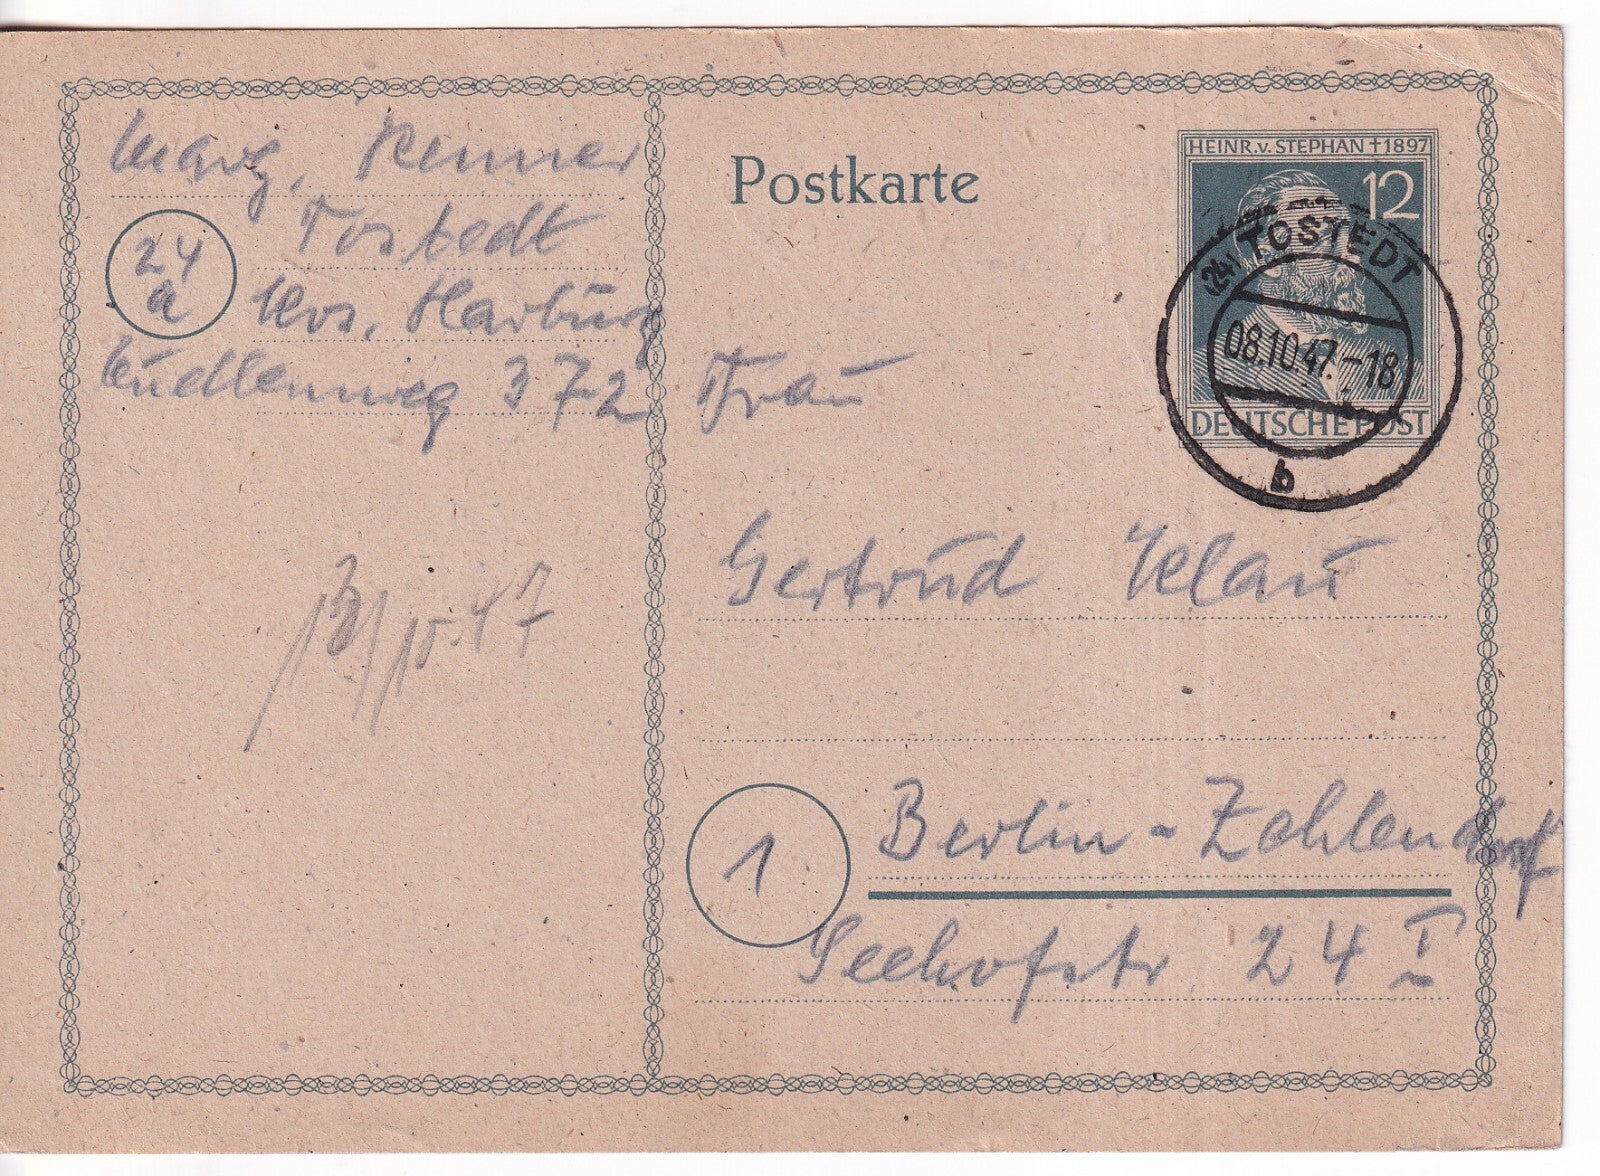 Marg. Renner
Tostedt
24
a Krs. Harburg
372
13/10.47
Postkarte
HEINR. v. STEPHAN † 1897
12
DEUTSCHE POST
(24) TOSTEDT
08.10.47.-18
b
Frau
Gertrud Klau
1
Berlin-Zehlendorf
Seehofstr. 24 I